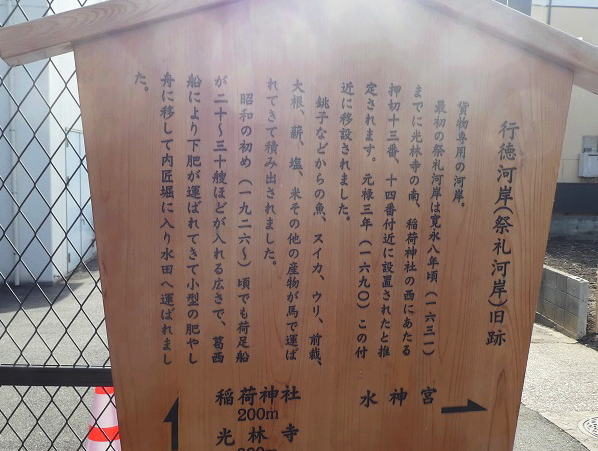 行徳河岸(祭礼河岸)旧跡
貨物専用の河岸。
最初の祭礼河岸は寛永八年頃(一六三一)
までに光林寺の南、稲荷神社の西にあたる
押切十三番、十四番付近に設置されたと推
定されます。元禄三年(一六九〇)この付
近に移設されました。
銚子などからの魚、スイカ、ウリ、前栽、
大根、薪、塩、米その他の産物が馬で運ば
れてきて積み出されました。
昭和の初め(一九二六〜)頃でも荷足船
が二十〜三十艘ほどが入れる広さで、葛西
船により下肥が運ばれてきて小型の肥やし
舟に移して内匠堀に入り水田へ運ばれまし
た。
水神宮
稲荷神社
200m
光林寺